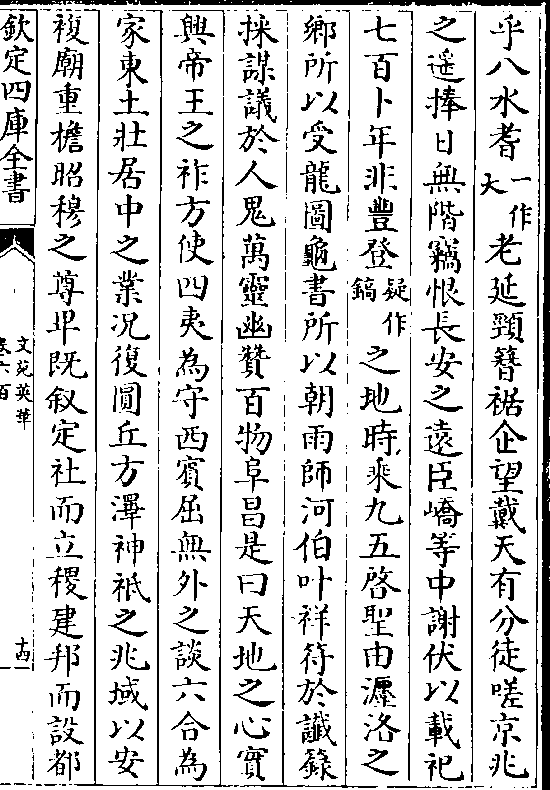 乎八水耆一作大老延頸簪裾企望戴天有分徒嗟京兆
之遥捧日無階竊恨長安之遠臣嶠等中謝伏以載祀
七百卜年非豐登疑作鎬之地時乘九五啓聖由瀍洛之
鄉所以受龍圖龜書所以朝雨師河伯叶祥符於讖籙
採謀議於人鬼萬靈幽贊百物阜昌是曰天地之心實
興帝王之祚方使四夷為守西賓屈無外之談六合為
家東土壯居中之業況復圓丘方澤神祇之兆域以安
複廟重檐昭穆之尊卑既叙定社而立稷建邦而設都
欽定四庫全書
文苑英華
卷六百
十四